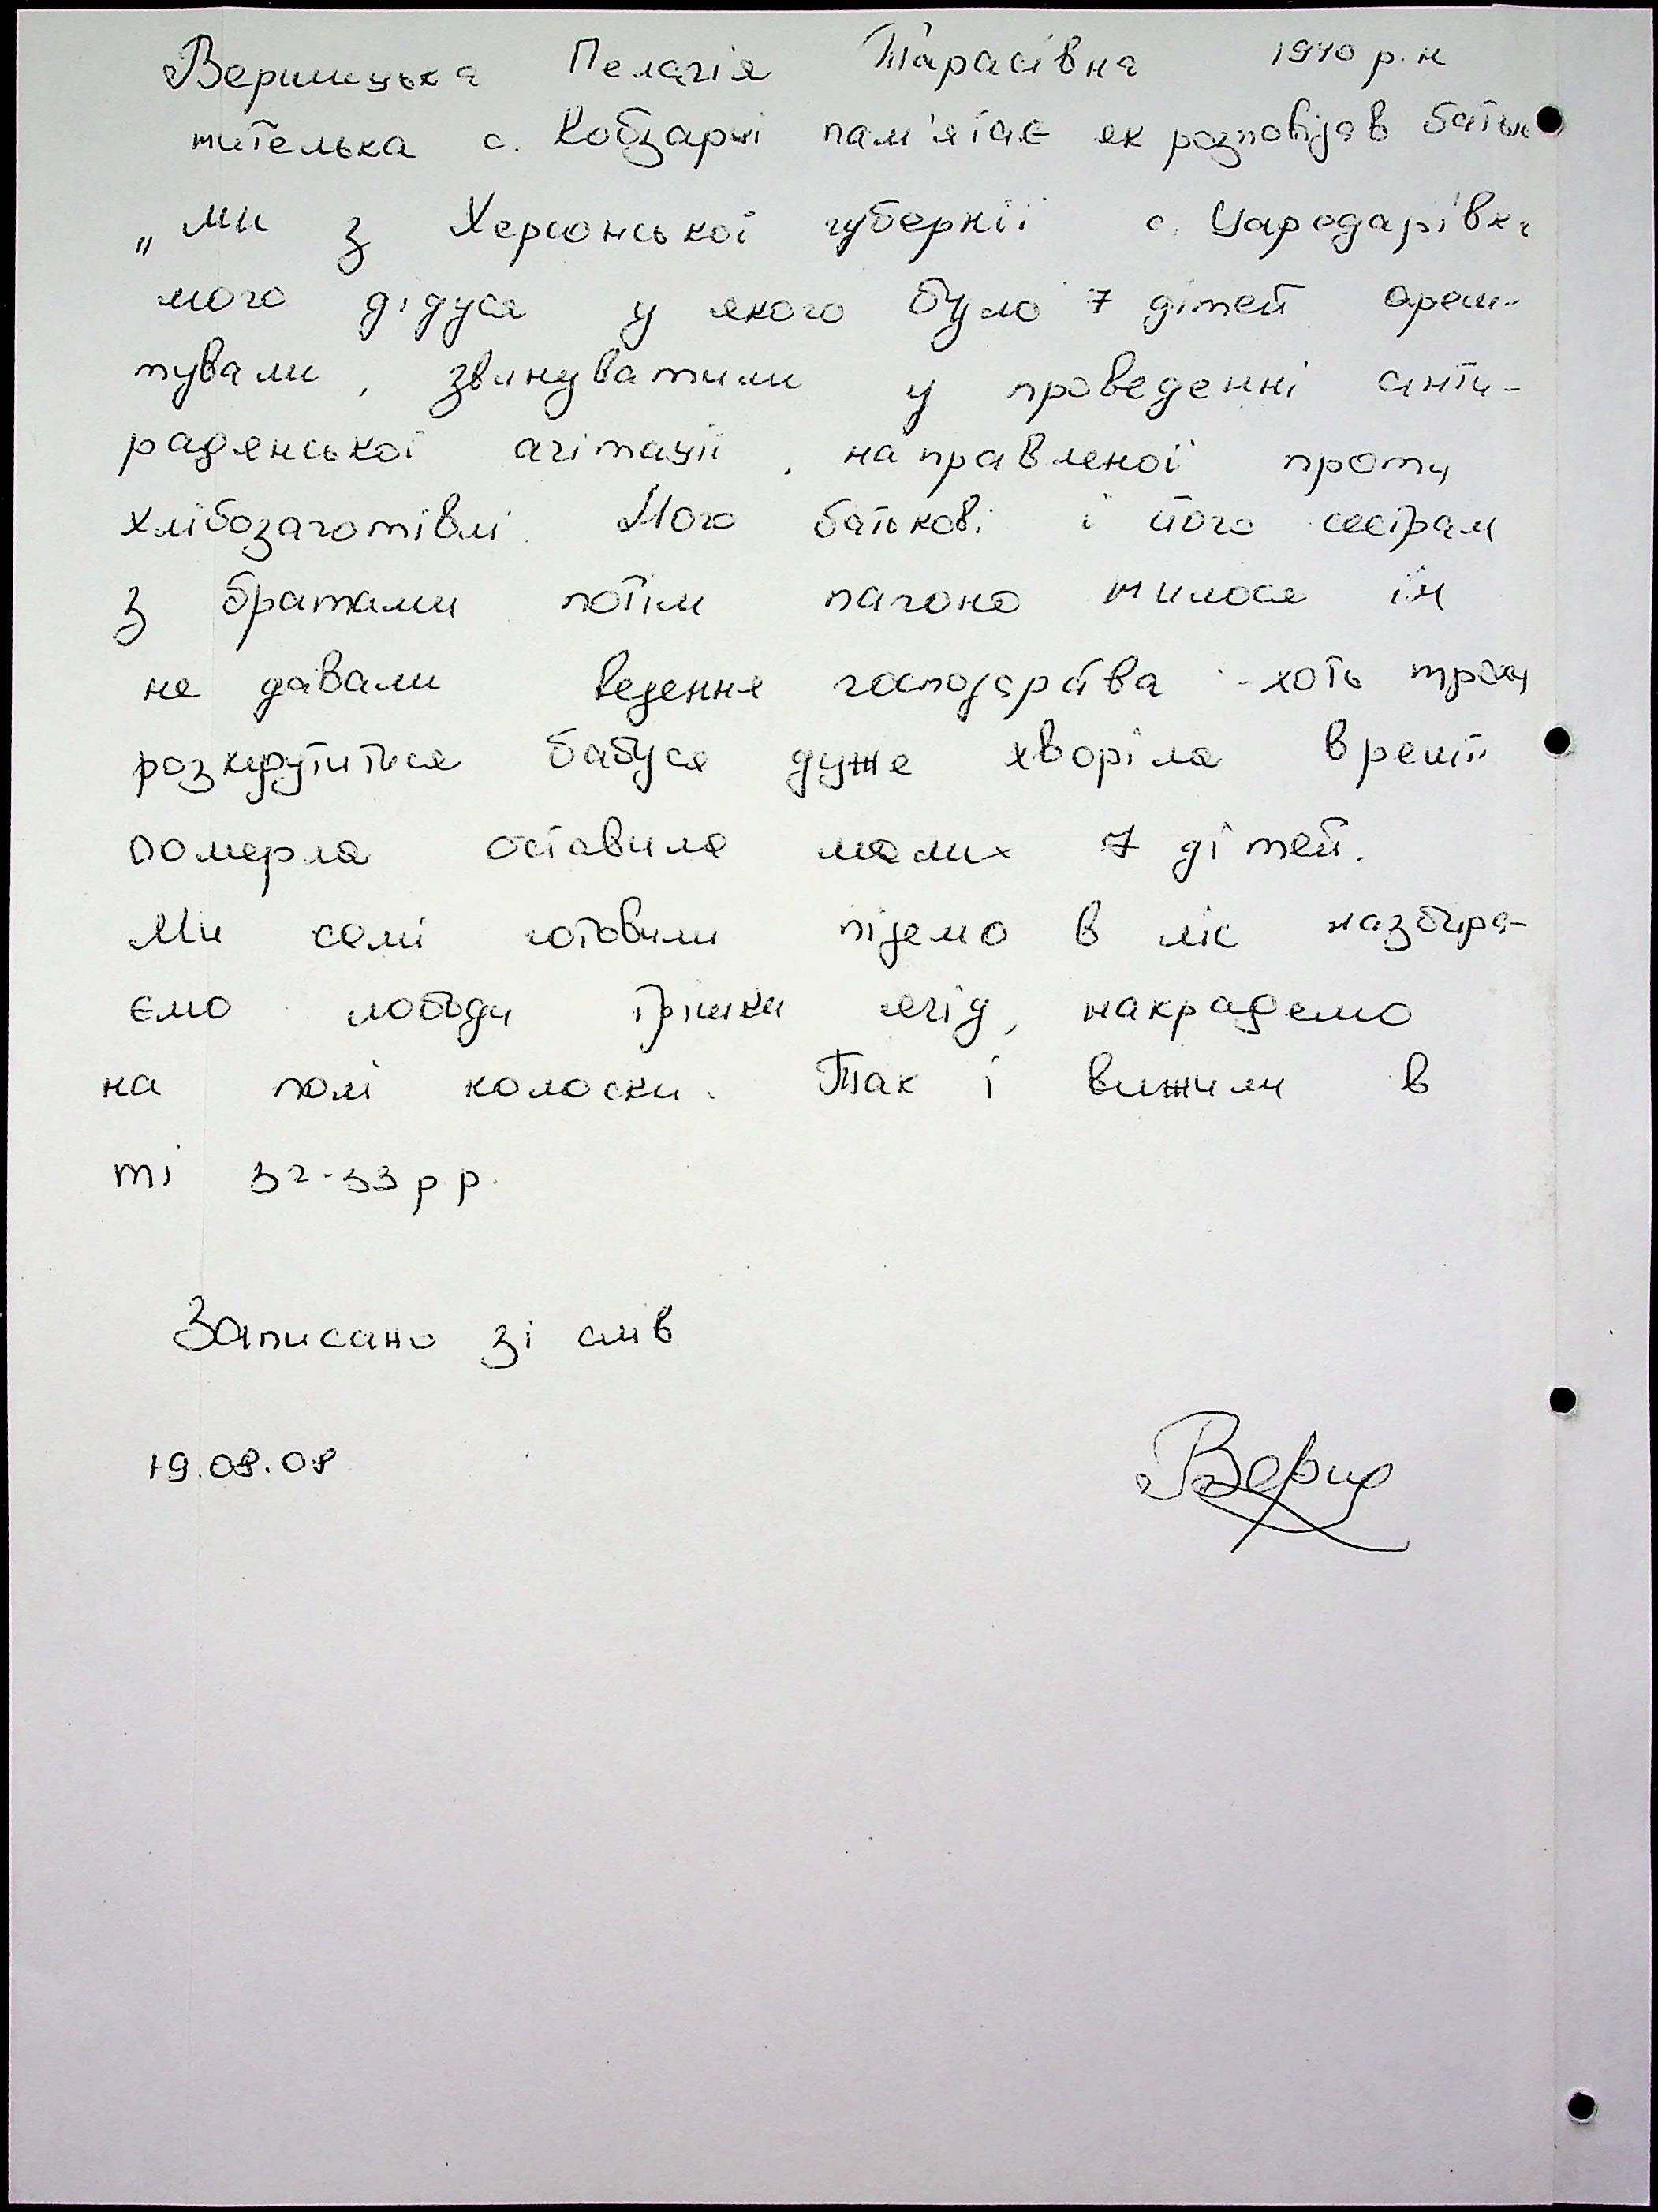 Вершицька Пелагія Тарасівна 1940 р.н
жителька с. Кобзарці пам'ятає як розповідав батько
„Ми з Херсонської губернії с. Царедарівка
мого дідуся у якого було 7 дітей ареш-
тували, звинуватили у проведенні анти-
радянської агітації, направленої проти
хлібозаготівлі. Мого батькові і його сестрам
з братами потім пагоно жилося їм
не давали ведення господарства - хоть трохи
розкрутитися бабуся дуже хворіла врешті
померла оставила малих 7 дітей.
Ми самі готовили підемо в ліс назбира-
ємо лободи трішки ягід, накрадемо
на полі колоски. Так і вижили в
ті 32-33 р р.
Записано зі слів
19.08.08